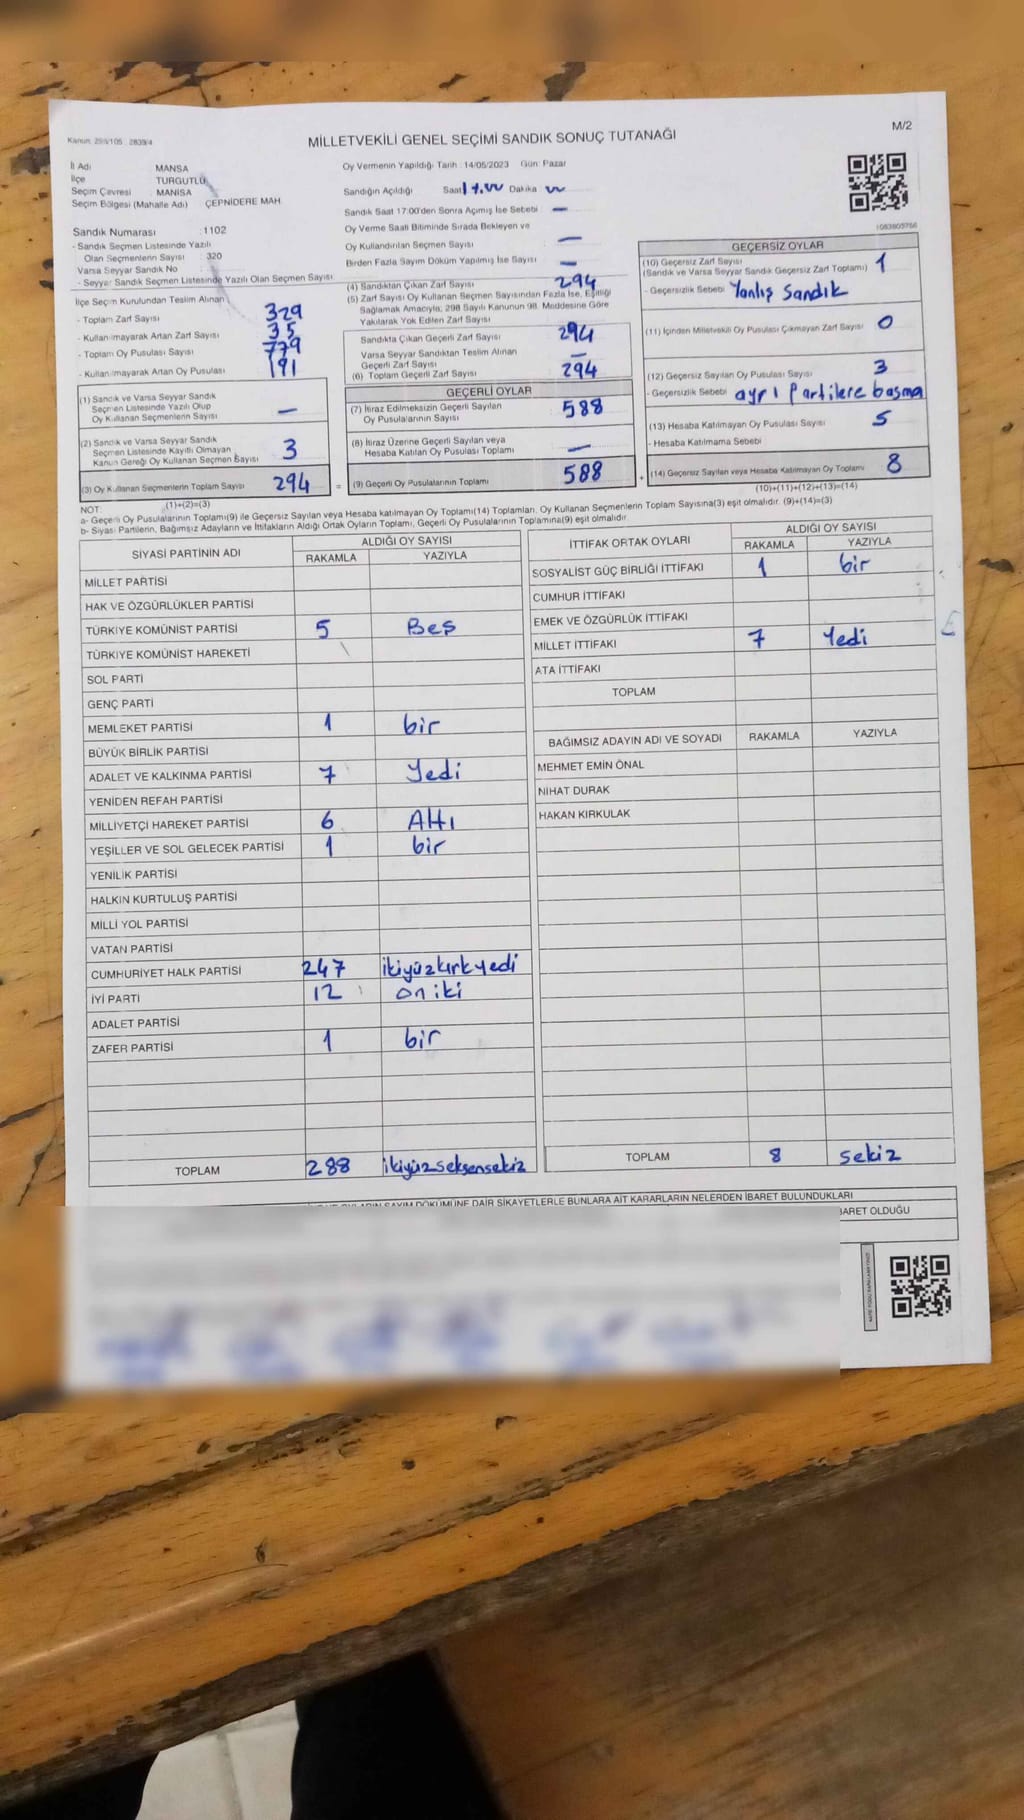 Kanun: 298/105 : 2839/4
MİLLETVEKİLİ GENEL SEÇİMİ SANDIK SONUÇ TUTANAĞI
M/2
İl Adı MANSA
İlçe TURGUTLU
Seçim Çevresi MANISA
Seçim Bölgesi (Mahalle Adı) ÇEPNİDERE MAH
Sandık Numarası : 1102
- Sandık Seçmen Listesinde Yazılı
Olan Seçmenlerin Sayısı : 320
Varsa Seyyar Sandık No
- Seyyar Sandık Seçmen Listesinde Yazılı Olan Seçmen Sayısı
İlçe Seçim Kurulundan Teslim Alınan
- Toplam Zarf Sayısı 329
- Kullanılmayarak Artan Zarf Sayısı 35
- Toplam Oy Pusulası Sayısı 779
- Kullanılmayarak Artan Oy Pusulası 191
(1) Sandık ve Varsa Seyyar Sandık
Seçmen Listesinde Yazılı Olup
Oy Kullanan Seçmenlerin Sayısı —
(2) Sandık ve Varsa Seyyar Sandık
Seçmen Listesinde Kayıtlı Olmayan
Kanun Gereği Oy Kullanan Seçmen Sayısı 3
(3) Oy Kullanan Seçmenlerin Toplam Sayısı 294 =
(1)+(2)=(3)
Oy Vermenin Yapıldığı Tarih : 14/05/2023 Gün: Pazar
Sandığın Açıldığı Saat 17.00 Dakika 00
Sandık Saat 17:00'den Sonra Açılmış İse Sebebi —
Oy Verme Saati Bitiminde Sırada Bekleyen ve
Oy Kullandırılan Seçmen Sayısı —
Birden Fazla Sayım Döküm Yapılmış İse Sayısı —
(4) Sandıktan Çıkan Zarf Sayısı 294
(5) Zarf Sayısı Oy Kullanan Seçmen Sayısından Fazla İse, Eşitliği
Sağlamak Amacıyla; 298 Sayılı Kanunun 98. Maddesine Göre
Yakılarak Yok Edilen Zarf Sayısı
Sandıkta Çıkan Geçerli Zarf Sayısı 294
Varsa Seyyar Sandıktan Teslim Alınan
Geçerli Zarf Sayısı —
(6) Toplam Geçerli Zarf Sayısı 294
GEÇERLİ OYLAR
(7) İtiraz Edilmeksizin Geçerli Sayılan
Oy Pusulalarının Sayısı 588
(8) İtiraz Üzerine Geçerli Sayılan veya
Hesaba Katılan Oy Pusulası Toplamı —
(9) Geçerli Oy Pusulalarının Toplamı 588 +
1083805756
GEÇERSİZ OYLAR
(10) Geçersiz Zarf Sayısı 1
(Sandık ve Varsa Seyyar Sandık Geçersiz Zarf Toplamı)
- Geçersizlik Sebebi Yanlış Sandık
(11) İçinden Milletvekili Oy Pusulası Çıkmayan Zarf Sayısı 0
(12) Geçersiz Sayılan Oy Pusulası Sayısı 3
- Geçersizlik Sebebi ayrı partilere basma
(13) Hesaba Katılmayan Oy Pusulası Sayısı 5
- Hesaba Katılmama Sebebi
(14) Geçersiz Sayılan veya Hesaba Katılmayan Oy Toplamı 8
(10)+(11)+(12)+(13)=(14)
NOT:
a- Geçerli Oy Pusulalarının Toplamı(9) ile Geçersiz Sayılan veya Hesaba katılmayan Oy Toplamı(14) Toplamları, Oy Kullanan Seçmenlerin Toplam Sayısına(3) eşit olmalıdır. (9)+(14)=(3)
b- Siyasi Partilerin, Bağımsız Adayların ve İttifakların Aldığı Ortak Oyların Toplamı, Geçerli Oy Pusulalarının Toplamına(9) eşit olmalıdır
SİYASİ PARTİNİN ADI ALDIĞI OY SAYISI
RAKAMLA YAZIYLA
MİLLET PARTİSİ
HAK VE ÖZGÜRLÜKLER PARTİSİ
TÜRKİYE KOMÜNİST PARTİSİ 5 Beş
TÜRKİYE KOMÜNİST HAREKETİ
SOL PARTİ
GENÇ PARTİ
MEMLEKET PARTİSİ 1 bir
BÜYÜK BİRLİK PARTİSİ
ADALET VE KALKINMA PARTİSİ 7 Yedi
YENİDEN REFAH PARTİSİ
MİLLİYETÇİ HAREKET PARTİSİ 6 Altı
YEŞİLLER VE SOL GELECEK PARTİSİ 1 bir
YENİLİK PARTİSİ
HALKIN KURTULUŞ PARTİSİ
MİLLİ YOL PARTİSİ
VATAN PARTİSİ
CUMHURİYET HALK PARTİSİ 247 ikiyüzkırkyedi
İYİ PARTİ 12 on iki
ADALET PARTİSİ
ZAFER PARTİSİ 1 bir
TOPLAM 288 ikiyüzseksensekiz
İTTİFAK ORTAK OYLARI ALDIĞI OY SAYISI
RAKAMLA YAZIYLA
SOSYALİST GÜÇ BİRLİĞİ İTTİFAKI 1 bir
CUMHUR İTTİFAKI
EMEK VE ÖZGÜRLÜK İTTİFAKI
MİLLET İTTİFAKI 7 Yedi
ATA İTTİFAKI
TOPLAM
BAĞIMSIZ ADAYIN ADI VE SOYADI RAKAMLA YAZIYLA
MEHMET EMİN ÖNAL
NİHAT DURAK
HAKAN KIRKULAK
TOPLAM 8 sekiz
SAYIM DÖKÜMÜNE DAİR ŞİKAYETLERLE BUNLARA AİT KARARLARIN NELERDEN İBARET BULUNDUKLARI
BARET OLDUĞU